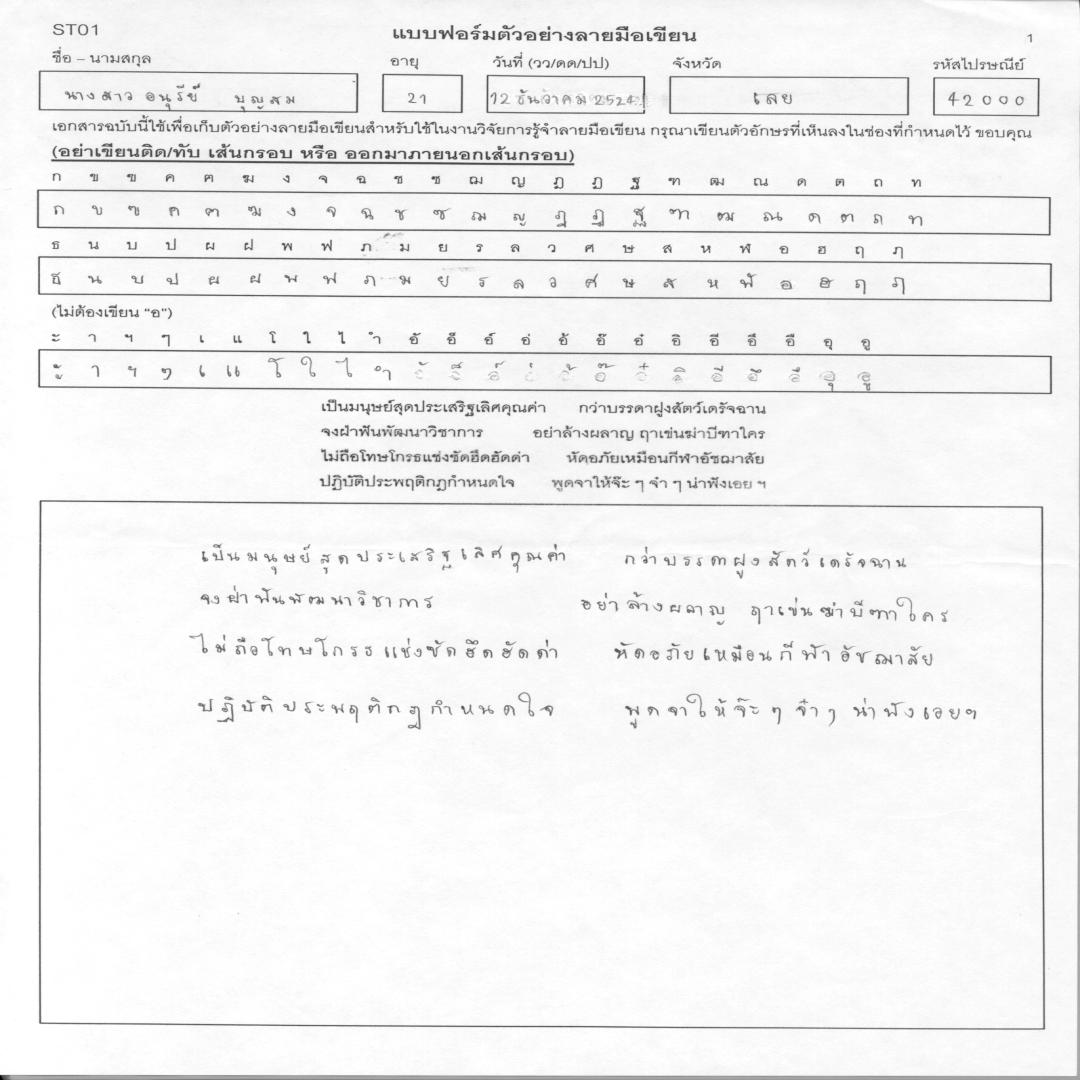 ST01
แบบฟอร์มตัวอย่างลายมือเขียน
1
ชื่อ – นามสกุล อายุ วันที่ (วว/ดด/ปป) จังหวัด รหัสไปรษณีย์
นางสาว อนุรีย์ บุญสม 21 12 ธันวาคม 2524 เลย 42000
เอกสารฉบับนี้ใช้เพื่อเก็บตัวอย่างลายมือเขียนสำหรับใช้ในงานวิจัยการรู้จำลายมือเขียน กรุณาเขียนตัวอักษรที่เห็นลงในช่องที่กำหนดไว้ ขอบคุณ
(อย่าเขียนติด/ทับ เส้นกรอบ หรือ ออกมาภายนอกเส้นกรอบ)
ก ข ฃ ค ฅ ฆ ง จ ฉ ช ซ ฌ ญ ฎ ฏ ฐ ฑ ฒ ณ ด ต ถ ท
ก ข ฃ ค ฅ ฆ ง จ ฉ ช ซ ฌ ญ ฎ ฏ ฐ ฑ ฒ ณ ด ต ถ ท
ธ น บ ป ผ ฝ พ ฟ ภ ม ย ร ล ว ศ ษ ส ห ฬ อ ฮ ฤ ฦ
ธ น บ ป ผ ฝ พ ฟ ภ ม ย ร ล ว ศ ษ ส ห ฬ อ ฮ ฤ ฦ
(ไม่ต้องเขียน “อ”)
ะ า ฯ ๆ เ แ โ ใ ไ ำ อั อ็ อ์ อ่ อ้ อ๊ อ๋ อิ อี อึ อื อุ อู
ะ า ฯ ๆ เ แ โ ใ ไ ำ อั อ็ อ์ อ่ อ้ อ๊ อ๋ อิ อี อึ อื อุ อู
เป็นมนุษย์สุดประเสริฐเลิศคุณค่า กว่าบรรดาฝูงสัตว์เดรัจฉาน
จงฝ่าฟันพัฒนาวิชาการ อย่าล้างผลาญ ฤาเข่นฆ่าบีฑาใคร
ไม่ถือโทษโกรธแช่งซัดฮึดฮัดด่า หัดอภัยเหมือนกีฬาอัชฌาสัย
ปฏิบัติประพฤติกฎกำหนดใจ พูดจาให้จ๊ะ ๆ จ๋า ๆ น่าฟังเอย ฯ
เป็นมนุษย์สุดประเสริฐเลิศคุณค่า กว่าบรรดาฝูงสัตว์เดรัจฉาน
จงฝ่าฟันพัฒนาวิชาการ อย่าล้างผลาญ ฤาเข่นฆ่าบีฑาใคร
ไม่ถือโทษโกรธแช่งซัดฮึดฮัดด่า หัดอภัยเหมือนกีฬาอัชฌาสัย
ปฏิบัติประพฤติกฎกำหนดใจ พูดจาให้จ๊ะๆ จ๋าๆ น่าฟังเอยฯ